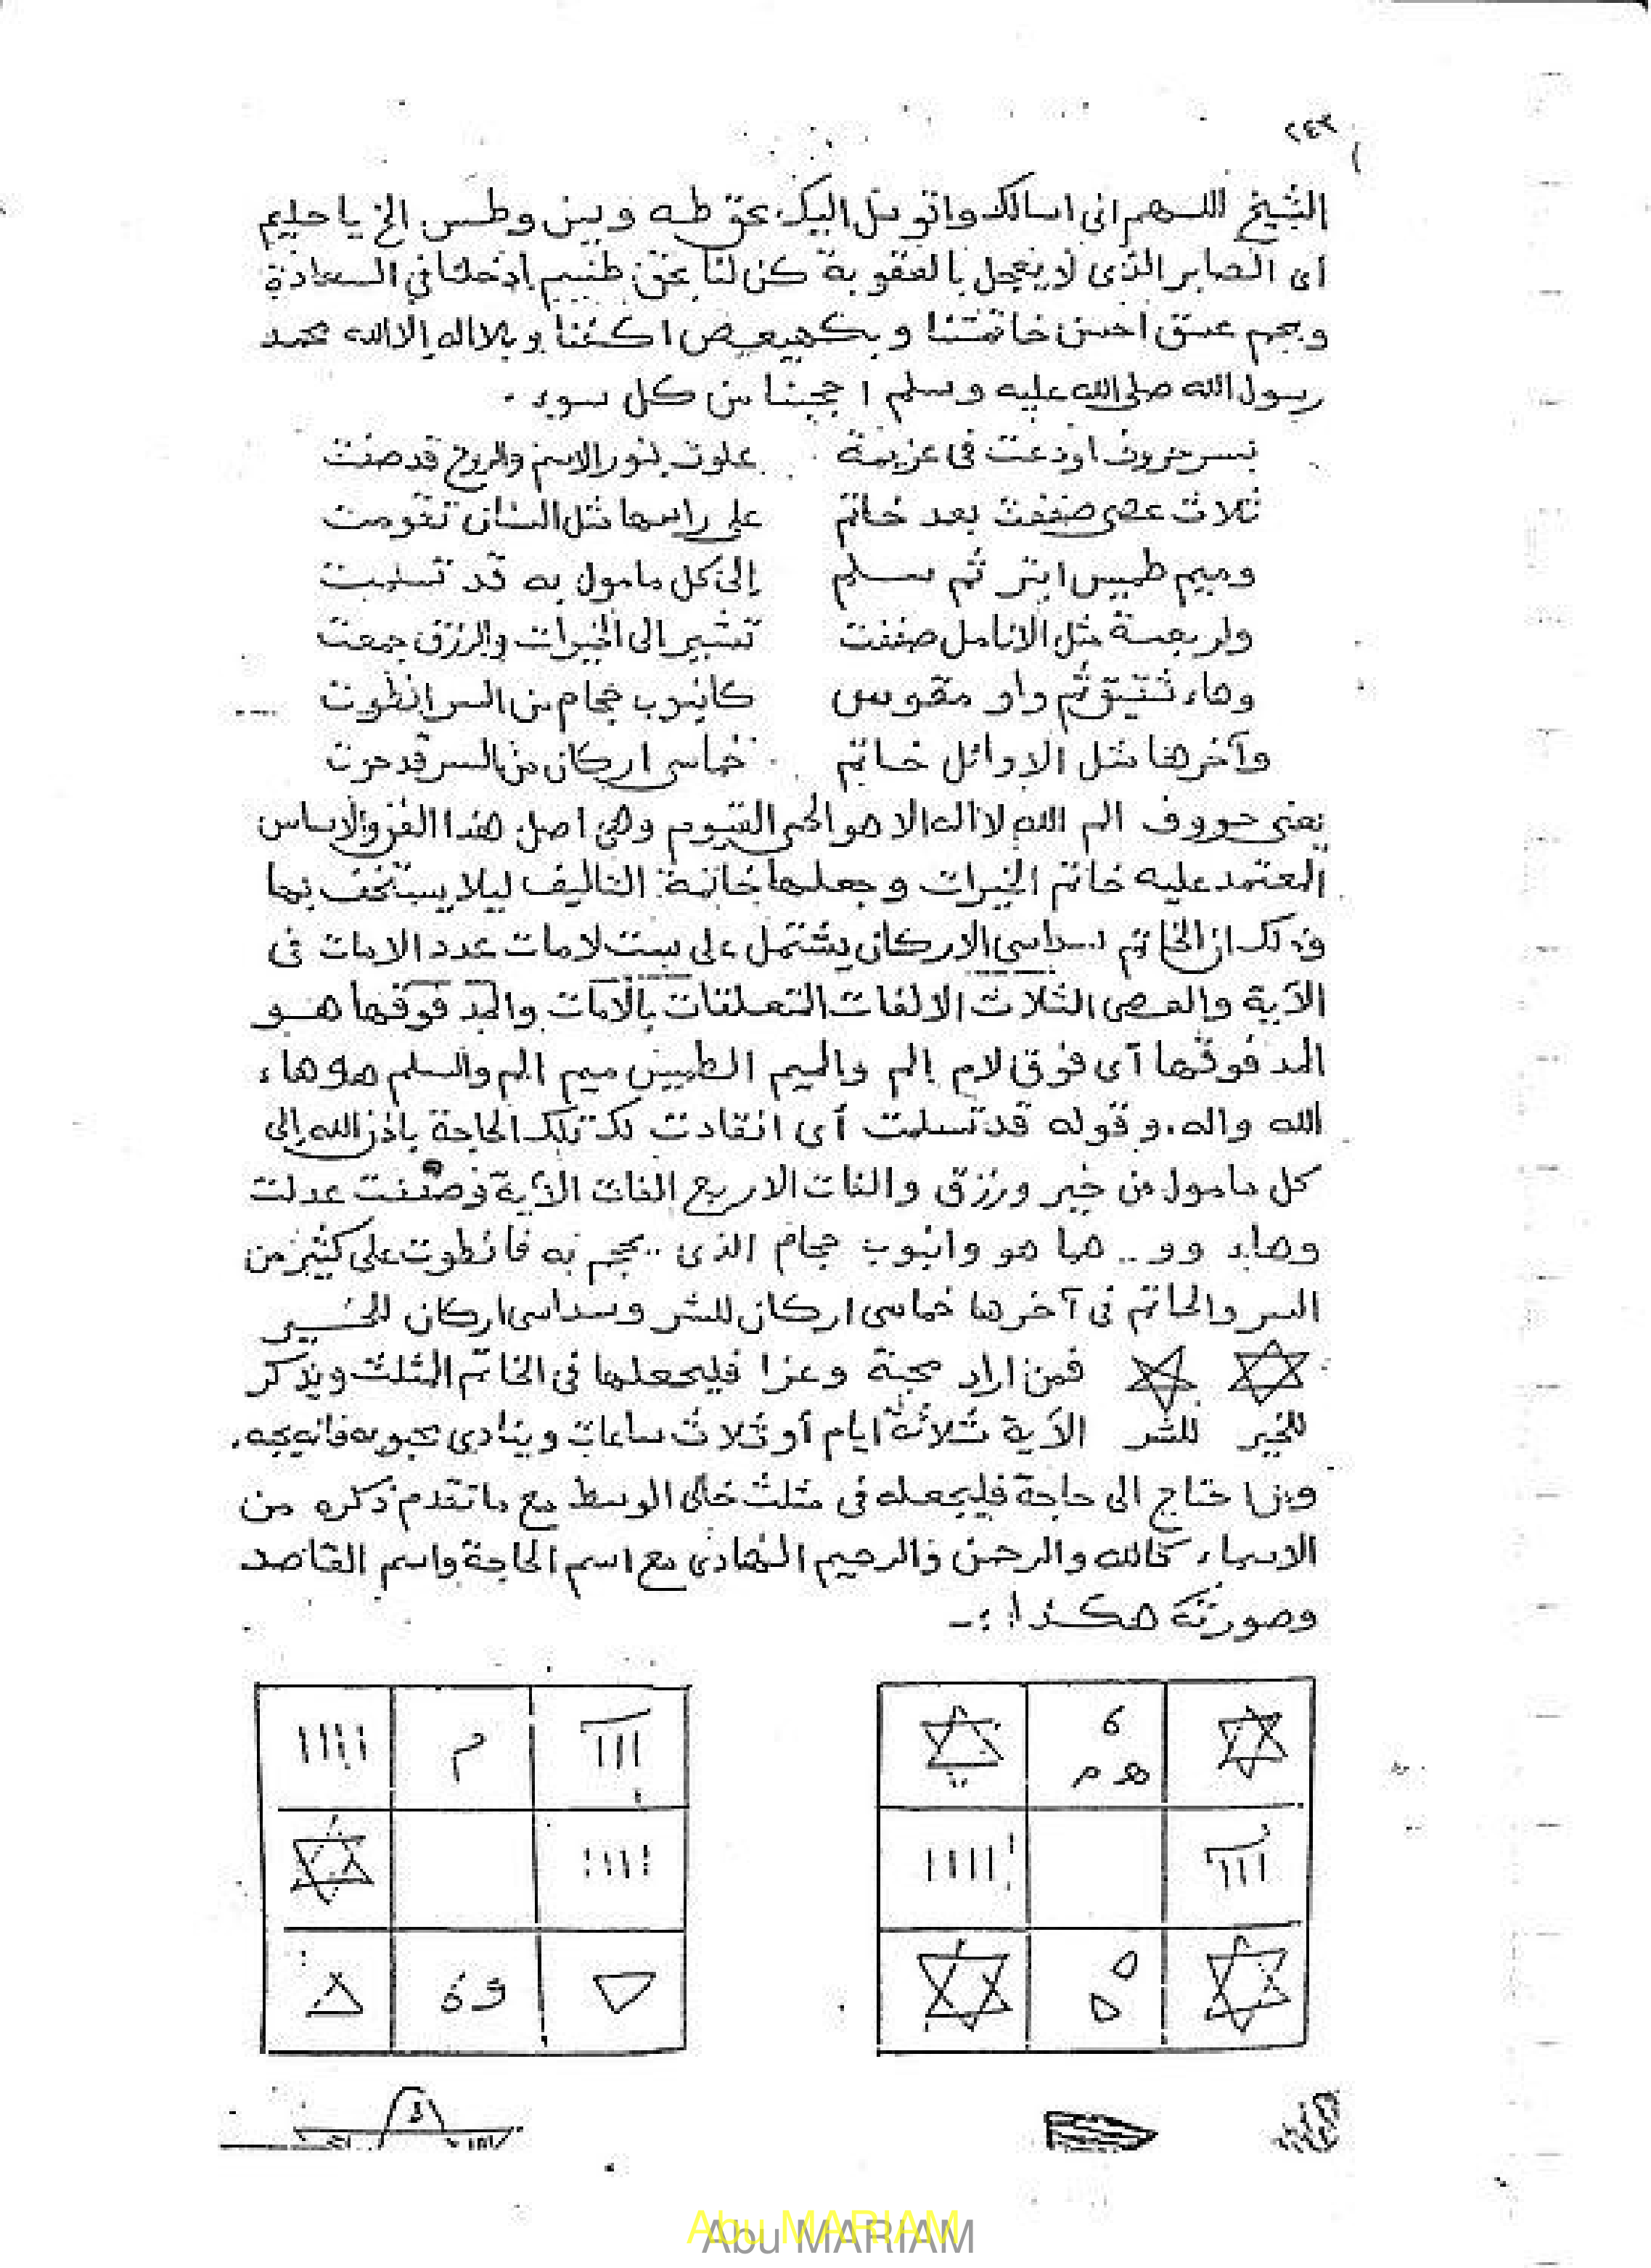 ٢٤٣
الشيخ اللهم انى اسالك واتوسل اليك بحق طه ويس وطس الخ يا حليم
اى الصابر الذى لا يعجل بالعقوبة كن لنا بحق طسم ادخلنا في السعادة
وبحم عسق احسن خاتمتنا وبكهيعص اكفنا وبلا اله إلا الله محمد
رسول الله صلى الله عليه وسلم احجبنا من كل سوء .
بسر حروف اودعت فى عزيمة علوت بنور الاسم والروح قد صفت
ثلاث عصى صففت بعد خاتم على راسها مثل السنان تقومت
وميم طميس ابتر ثم سلم إلى كل مامول به قد تسلمت
واربعة مثل الانامل صففت تشير الى الخيرات والرزق جمعت
وهاء شقيق ثم واو مقوس كانبوب حجام من السر انطوت
وآخرها مثل الاوائل خاتم خماسى اركان من السر قد حوت
يعنى حروف الم الله لا اله الا هو الحى القيوم وهى اصل هذا الفن والاساس
المعتمد عليه خاتم الخيرات وجعلها خاتمة التاليف ليلا يستخف بها
وذلك ان الخاتم سداسى الاركان يشتمل على ست لامات عدد الامات فى
الآية والعصى الثلاث الالفات المتعلقات بالامات والمد فوقها هو
المد فوقها آى فوق لام الم والميم الطميس ميم الم والسلم هو هاء
الله واله . وقوله قد تسلمت أى انقادت لك تلك الحاجة باذن الله إلى
كل مامول من خير ورزق والفات الاربع الفات الآية وصففت عدلت
وهاء وو .. هما هو وانبوب حجام الذى .. يحجم به فانطوت على كثير من
السر والخاتم فى آخرها خماسى اركان للشر وسداسى اركان للخير
فمن اراد محبة وعزا فليجعلها فى الخاتم المثلث ويذكر
للخير للشر الآية ثلاثة ايام أو ثلاث ساعات وينادى محبوبه فانه يجه .
ومن احتاج الى حاجة فليجعله فى مثلث خالى الوسط مع ما تقدم ذكره من
الاسماء كالله والرحمن والرحيم الهادى مع اسم الحاجة واسم القاصد
وصورته هكذا :-
٦
ه م
م
و ٥
Abu MARIAM